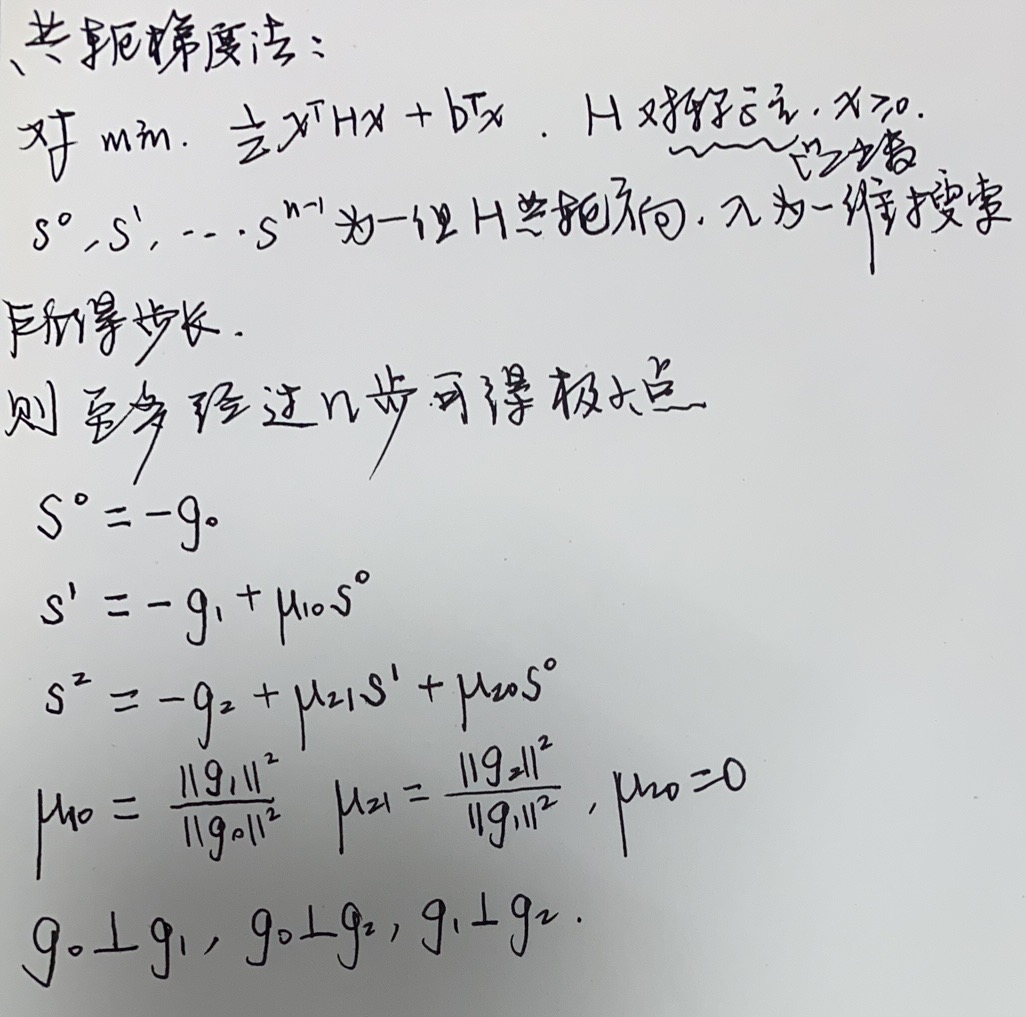 共轭梯度法：
对于 min. ½xᵀHx + bᵀx . H 对称正定. x≥0.
s⁰, s¹, ... sⁿ⁻¹ 为一组H共轭方向. λ为一维搜索
所得步长.
则至多经过n步可得极小点
S⁰ = -g₀
s¹ = -g₁ + μ₁₀s⁰
s² = -g₂ + μ₂₁s¹ + μ₂₀s⁰
μ₁₀ = ||g₁||²/||g₀||² μ₂₁ = ||g₂||²/||g₁||², μ₂₀=0
g₀⊥g₁, g₀⊥g₂, g₁⊥g₂.